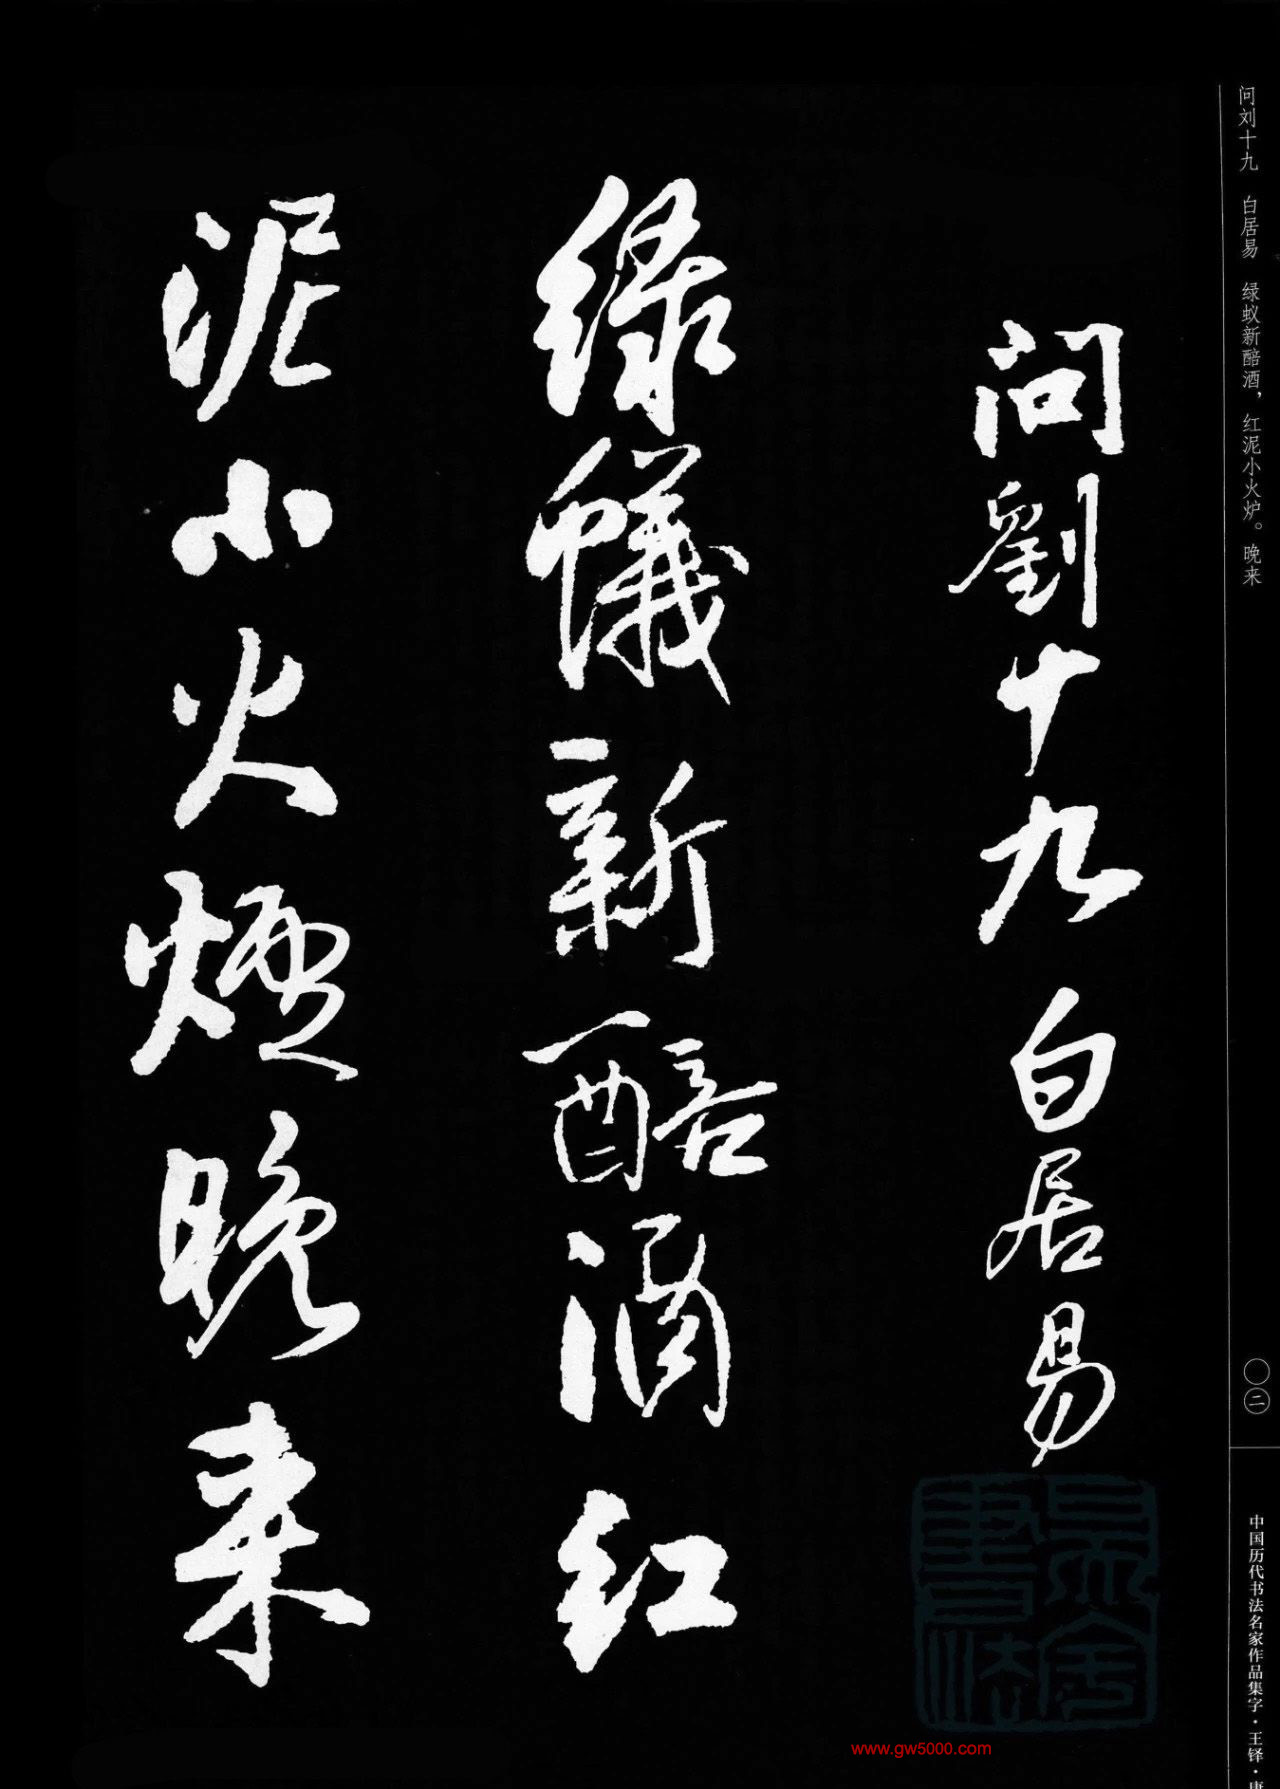 问刘十九 白居易 绿蚁新醅酒，红泥小火炉。晚来
〇二
中国历代书法名家作品集字·王铎·
問劉十九白居易
緑蟻新醅酒红
泥小火爐晚来
www.gw5000.com